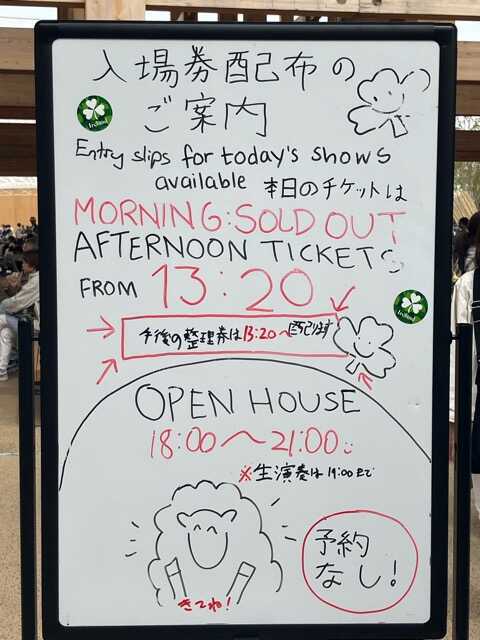 入場券配布の
ご案内
Ireland
Entry slips for today's shows
available 本日のチケットは
MORNING: SOLD OUT
AFTERNOON TICKETS
FROM 13:20
Ireland
午後の整理券は13:20〜配ります
OPEN HOUSE
18:00〜21:00
※生演奏は19:00まで
予約
なし!
きてね!